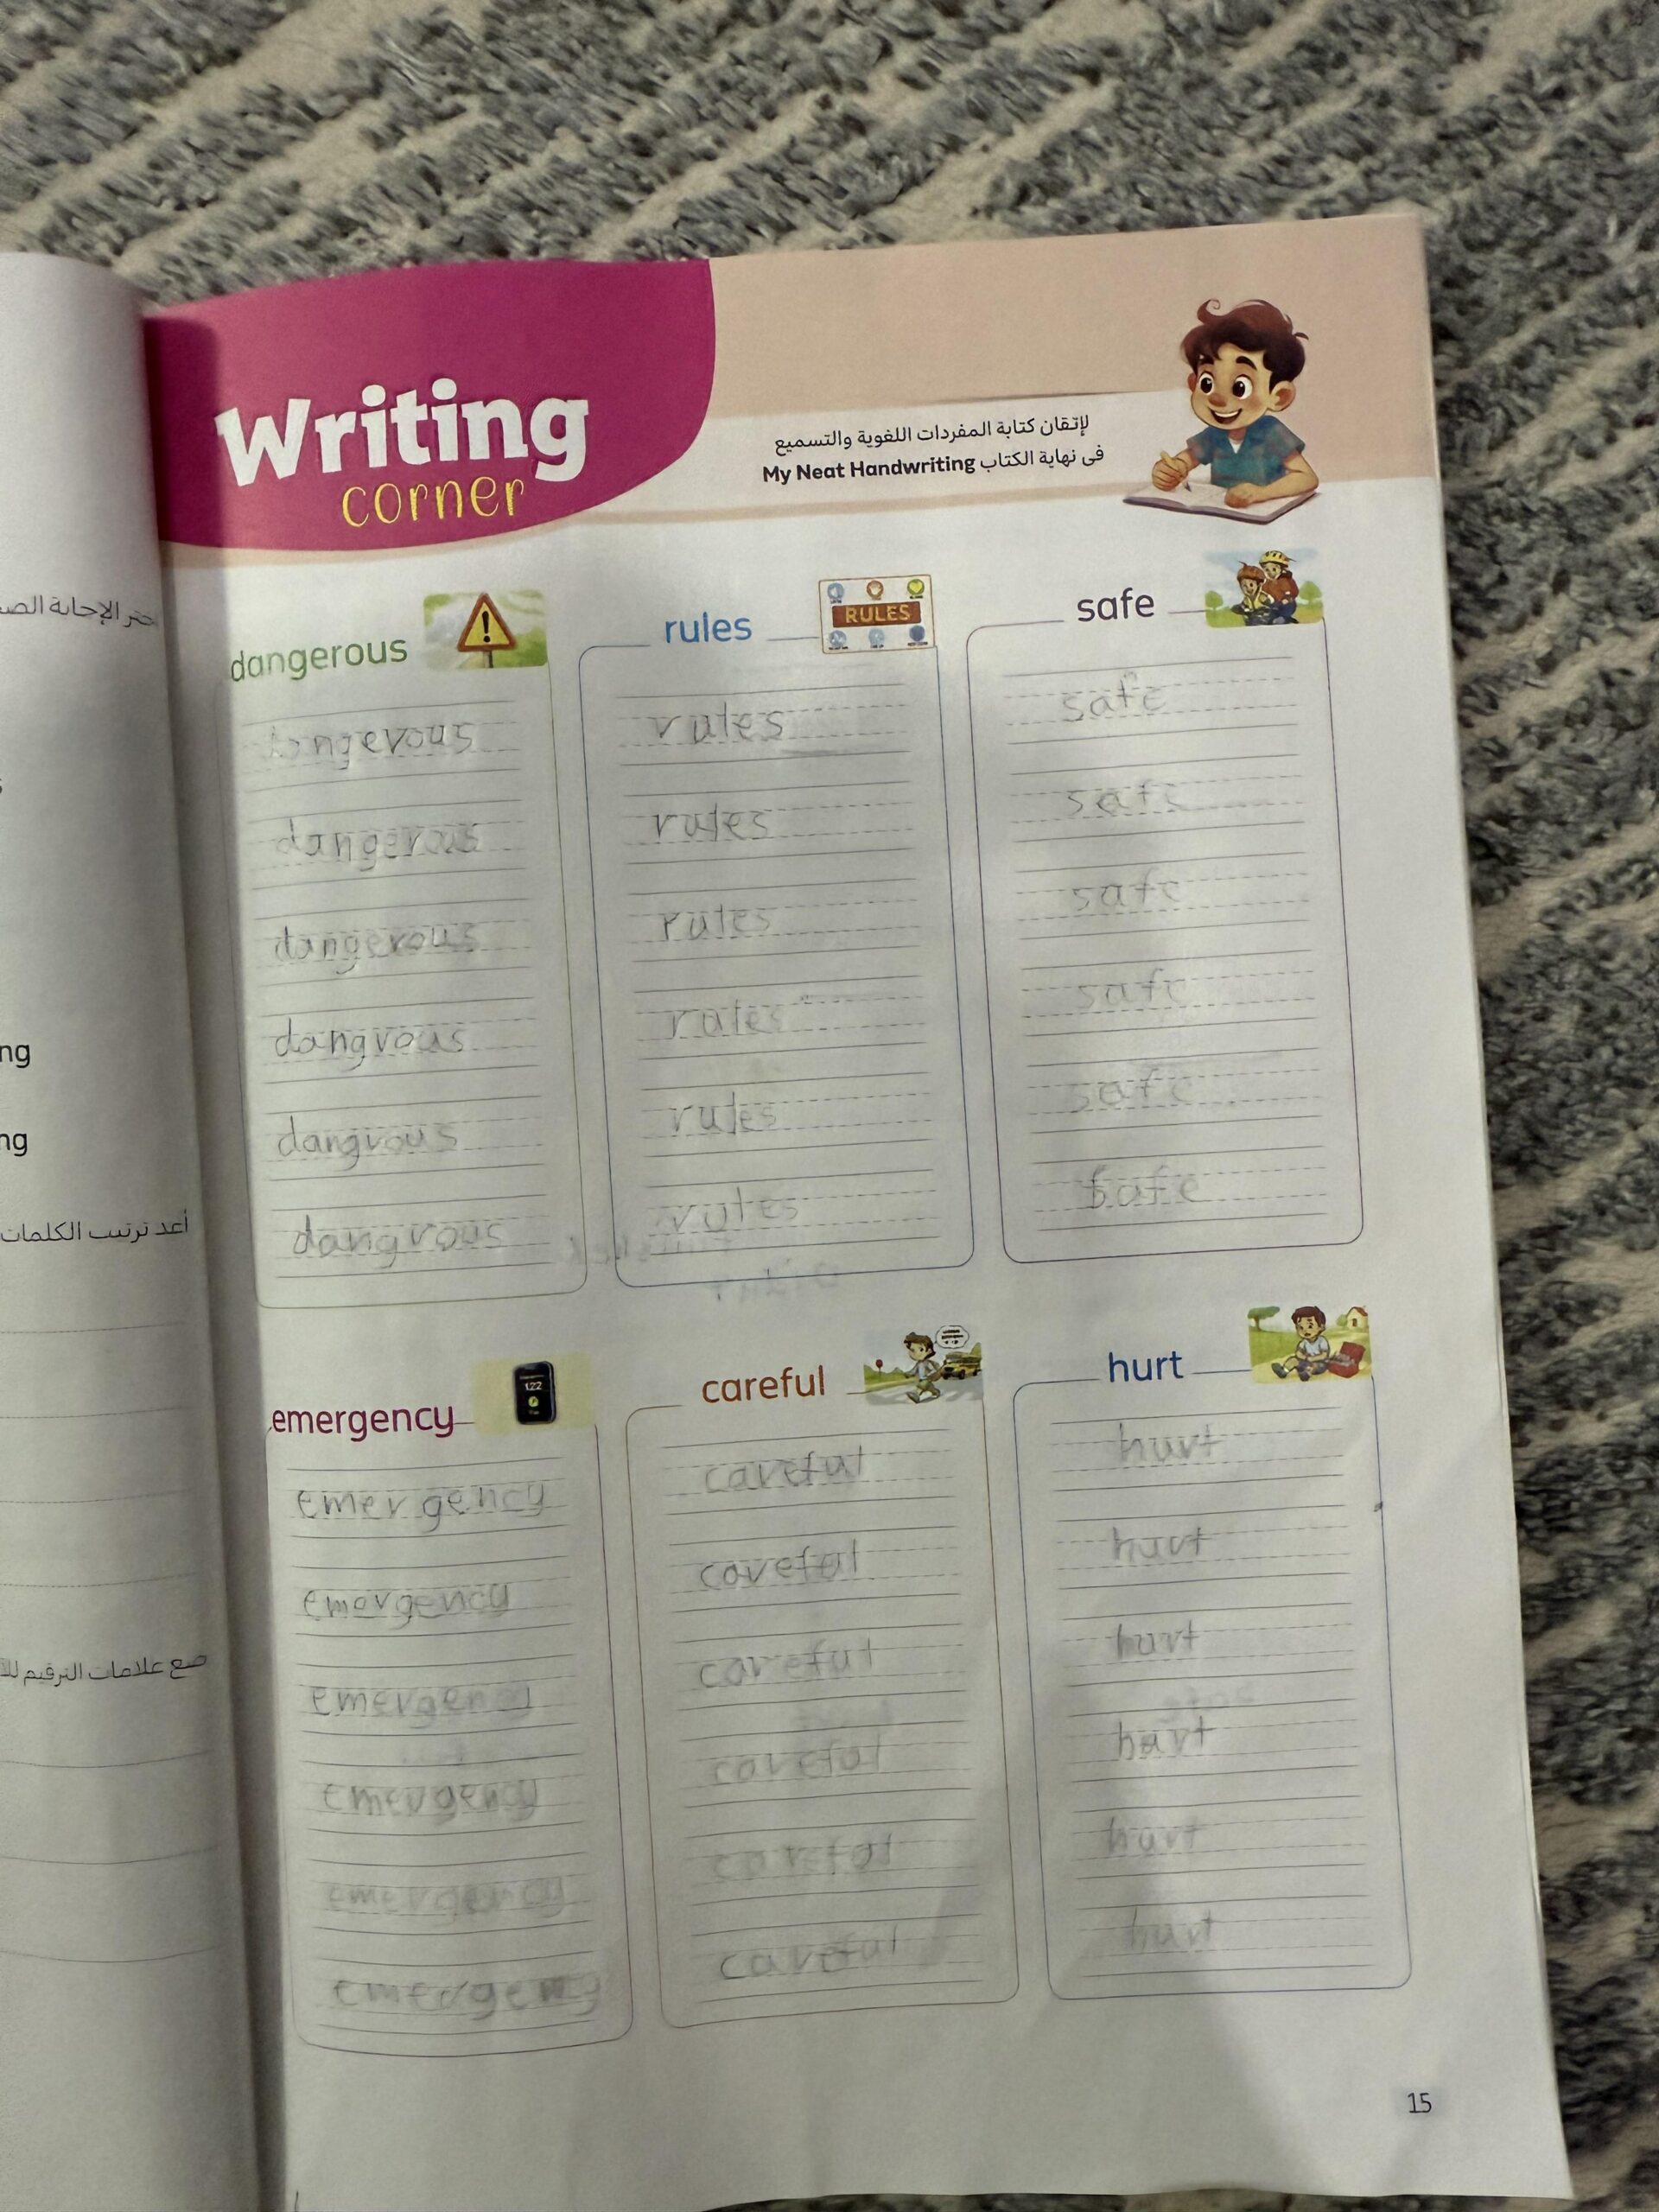 Writing
corner
لإتقان كتابة المفردات اللغوية والتسميع
فى نهاية الكتاب My Neat Handwriting
ng
ng
أعد ترتيب الكلمات
ضع علامات الترقيم
dangerous
dangerous
dangerous
dangrous
dangrous
dangrous
rules
RULES
rules
rules
rules
rules
rules
rules
safe
safe
safe
safe
safe
safe
safe
emergency
122
emergency
emergency
emergency
emergency
emergency
careful
careful
careful
careful
careful
careful
hurt
hurt
hurt
hurt
hurt
hurt
hurt
15